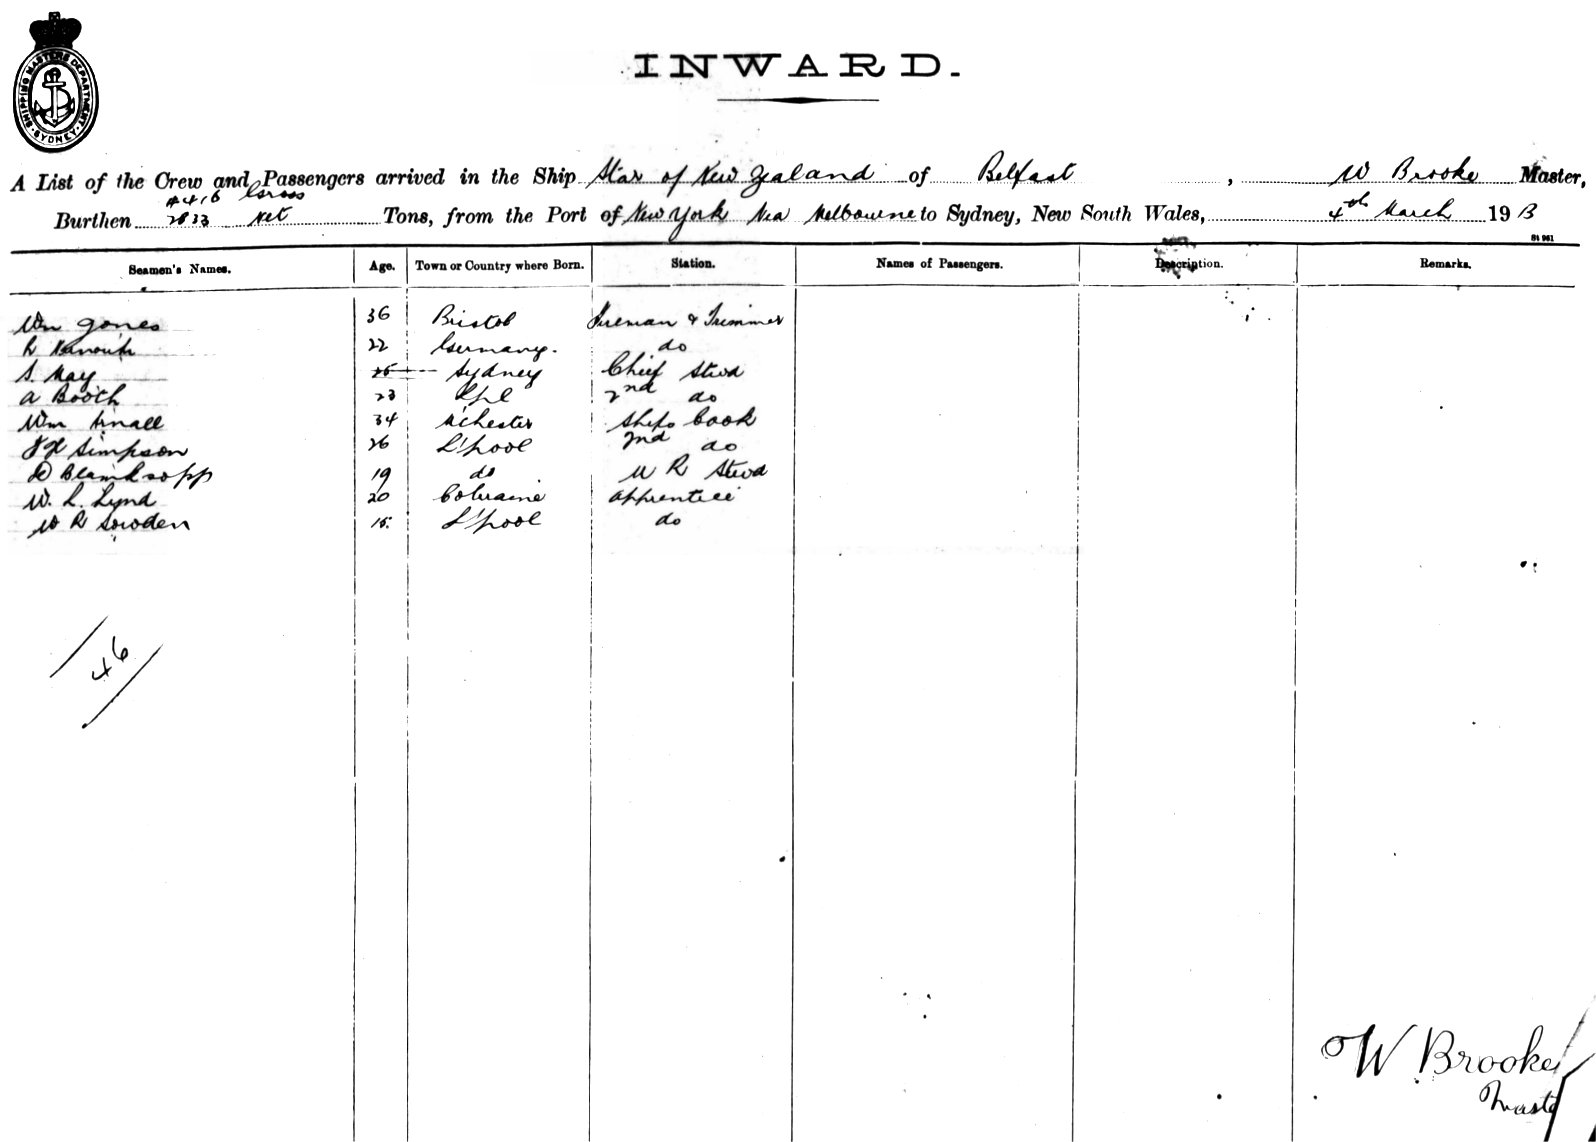 SHIPPING MASTERS DEPARTMENT · SYDNEY ·
INWARD.
A List of the Crew and Passengers arrived in the Ship Star of New Zealand of Belfast, W Brooke Master,
4416 Gross
Burthen 2833 Net Tons, from the Port of New York Via Melbourne to Sydney, New South Wales, 4th March 1913
St 961
Seamen's Names. Age. Town or Country where Born. Station. Names of Passengers. Description. Remarks.
Wm Jones 36 Bristol Fireman & Trimmer
22 Germany. do
S. May 25 Sydney Chief Stwd
A Booth 23 Lpl 2nd do
Wm Small 34 Mchester Ships Cook
Simpson 26 L'pool 2nd do
D Blenksopp 19 do M R Stwd
W. L. Lynd 20 Colraine Apprentice
W R Sowden 15. L'pool do
46
W Brooke
Master